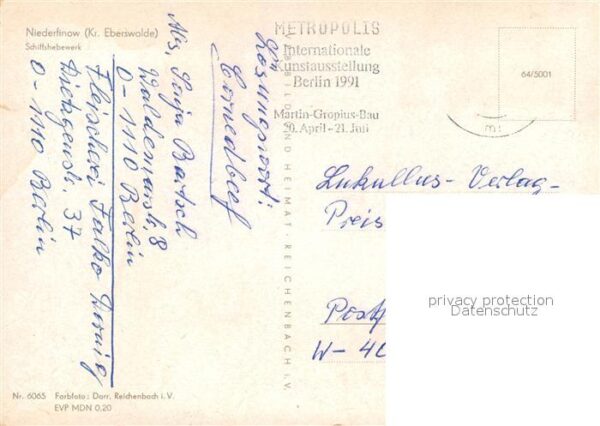 Niederfinow (Kr. Eberswalde)
Schiffshebewerk
METROPOLIS
Internationale
Kunstausstellung
Berlin 1991
Martin-Gropius-Bau
20. April - 21. Juli
64/5001
Lösungswort:
Cornedbeef
Abs. Sonja Bartsch
Waldemarstr. 8
O-1110 Berlin
Fleischerei Falko Dornig
Dietzgenstr. 37
O-1110 Berlin
BILD UND HEIMAT · REICHENBACH i. V.
Lukullus-Verlag-
Preis
Postf
W-40
privacy protection
Datenschutz
Nr. 6065 Farbfoto: Darr, Reichenbach i. V.
EVP MDN 0,20